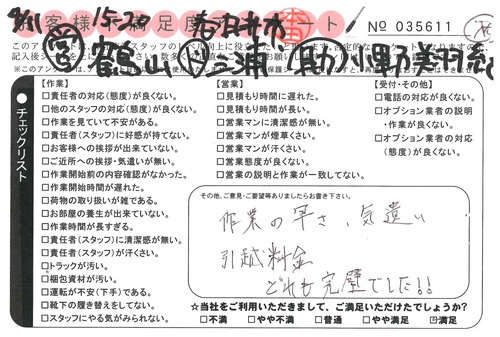 9/11 15-20 春日井市
お客様満足度アンケート No 035611
鶴山 三浦 小野
チェックリスト
【作業】
□責任者の対応(態度)が良くない。
□他のスタッフの対応(態度)が良くない。
□作業を見ていて不安がある。
□責任者(スタッフ)に好感が持てない。
□お客様への挨拶が出来ていない。
□ご近所への挨拶・気遣いが無い。
□作業開始前の内容確認がなかった。
□作業開始時間が遅れた。
□荷物の取り扱いが雑である。
□お部屋の養生が出来ていない。
□作業時間が長すぎる。
□責任者(スタッフ)に清潔感が無い。
□責任者(スタッフ)が汗くさい。
□トラックが汚い。
□梱包資材が汚い。
□運転が不安(下手)である。
□靴下の履き替えをしてない。
□スタッフにやる気がみられない。
【営業】
□見積もり時間に遅れた。
□見積もり時間が長い。
□営業マンに清潔感が無い。
□営業マンが煙草くさい。
□営業マンが汗くさい。
□営業態度が良くない。
□営業の説明と作業が一致してない。
【受付・その他】
□電話の対応が良くない。
□オプション業者の説明
・作業が良くない。
□オプション業者の対応
(態度)が良くない。
その他、ご意見・ご要望等ありましたらお書き下さい。
作業の早さ、気遣い
引越料金
どれも完璧でした!!
☆当社をご利用いただきまして、ご満足いただけたでしょうか?
□不満 □やや不満 □普通 □やや満足 ☑満足